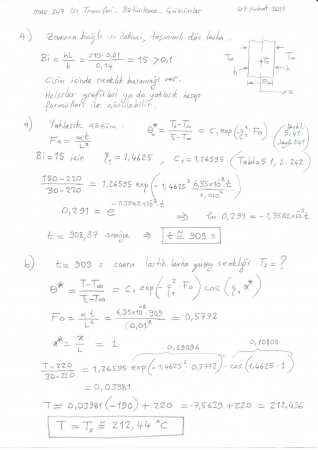 MAK 347 Isı Transferi - Bütünleme - Çözümler 07 Şubat 2011
4) Zamana bağlı ısı iletimi, taşınımlı düz levha,..
Bi = hL/k = 210·0,01/0,14 = 15 > 0,1
T∞ T∞
h h
x
Cisim içinde sıcaklık basamağı var.
Heissler grafikleri ya da yaklaşık hesap
formülleri ile çözülebilir.
a) Yaklaşık çözüm: θ₀* = (T₀-T∞)/(Tᵢ-T∞) = C₁ exp(-ζ₁²·Fo) (Denkl. 5.41 Sayfa 241)
Fo = αt/L²
Bi=15 için ζ₁ = 1,4625 , C₁ = 1,26595 (Tablo 5.1, s.242)
(150-220)/(30-220) = 1,26595 exp(-1,4625² 6,35×10⁻⁸·t/0,010²)
0,291 = e^(-1,3582×10⁻³·t) ⇒ ln 0,291 = -1,3582×10⁻³·t
t = 908,87 saniye ⇒ t ≅ 909 s
b) t = 909 s sonra lastik levha yüzey sıcaklığı Ts = ?
θ* = (T-T∞)/(Tᵢ-T∞) = C₁ exp(-ζ₁²·Fo) cos(ζ₁ x*)
Fo = αt/L² = 6,35×10⁻⁸·909/(0,01)² = 0,5772
x* = x/L = 1
0,29096 0,10808
(T-220)/(30-220) = 1,26595 exp(-1,4625²·0,5772)·cos(1,4625·1)
= 0,03981
T = 0,03981(-190) + 220 = -7,5639 + 220 = 212,436
T = Ts ≅ 212,44 °C